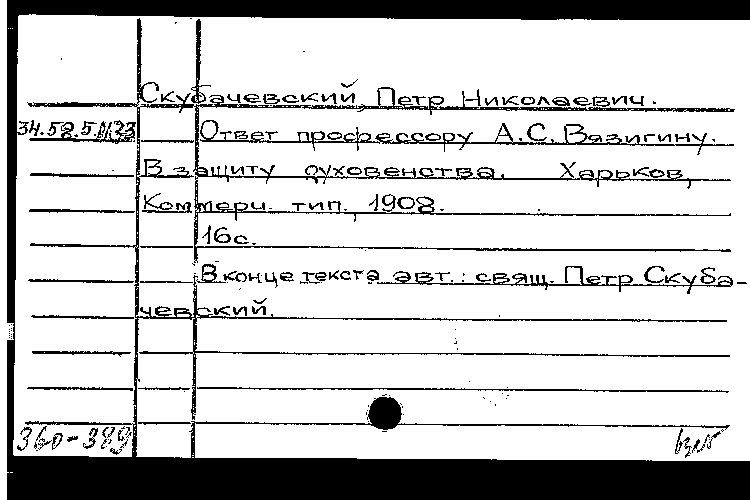 Скубачевский, Петр Николаевич.
34.58.5. Ответ профессору А.С. Вязигину.
В защиту духовенства. Харьков,
Коммерч. тип., 1908.
16с.
В конце текста авт.: свящ. Петр Скуба-
чевский.
360-389